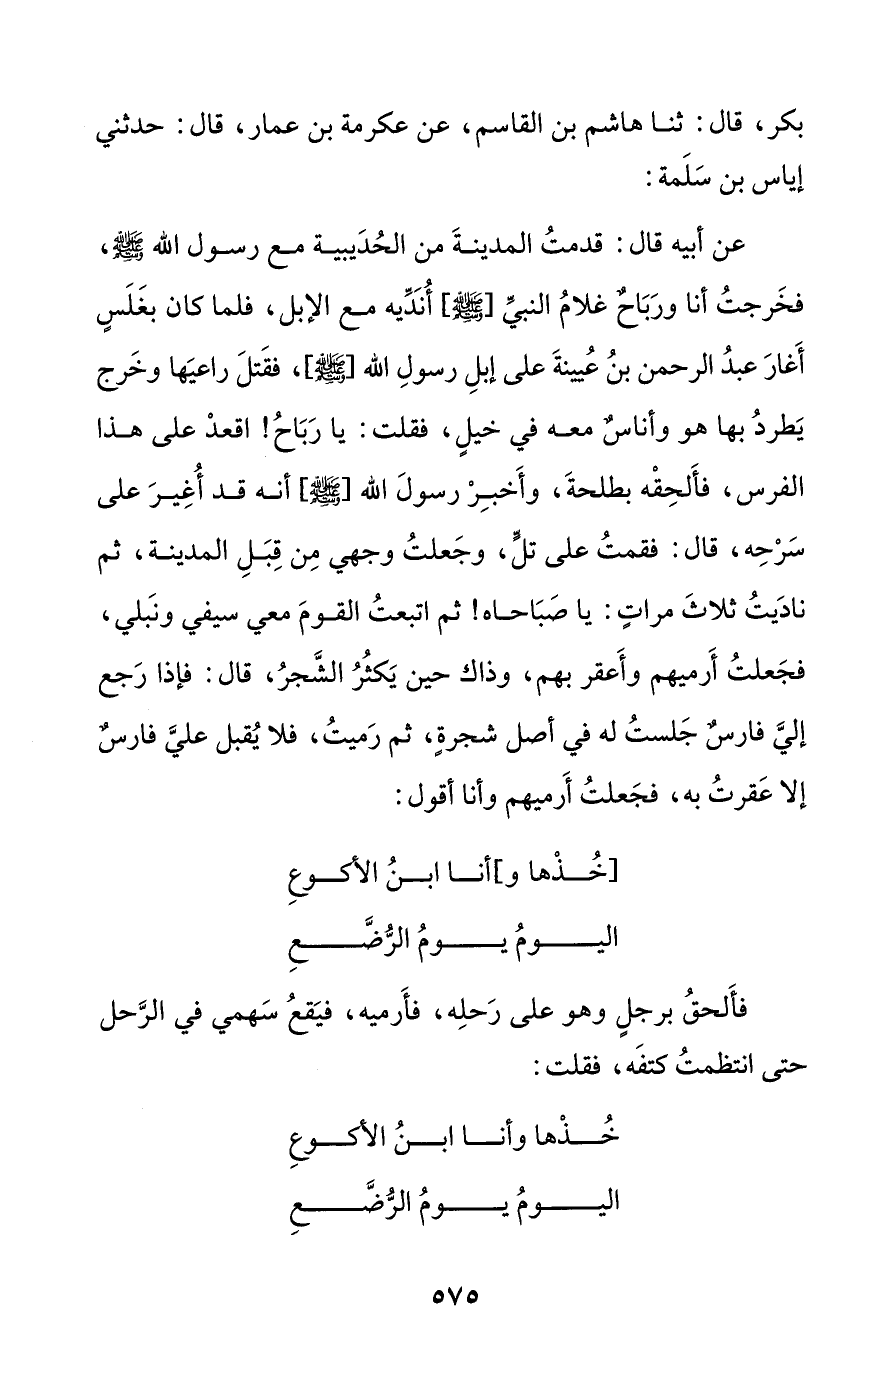 بكر، قال: ثنـا هاشم بن القاسم، عن عكرمة بن عمار، قال: حدثني
إياس بن سَلَمة:
عن أبيه قال: قدمتُ المدينـةَ من الحُدَيبيـة مـع رسـول الله ﷺ،
فخَرجتُ أنا ورَبَاحٌ غلامُ النبيِّ [ﷺ] أُنَدِّيه مـع الإبل، فلما كان بغَلَسٍ
أَغارَ عبدُ الرحمن بنُ عُيينةَ على إبلِ رسولِ الله [ﷺ]، فقَتلَ راعيَها وخَرج
يَطردُ بها هو وأناسٌ معـه في خيلٍ، فقلت: يا رَبَاحُ! اقعدْ على هـذا
الفرس، فأَلحِقْه بطلحةَ، وأَخبِـرْ رسولَ الله [ﷺ] أنـه قـد أُغِيـرَ على
سَرْحِه، قال: فقمتُ على تلٍّ، وجَعلتُ وجهي مِن قِبَـلِ المدينـة، ثم
نادَيتُ ثلاثَ مراتٍ: يا صَبَاحـاه! ثم اتبعتُ القـومَ معي سيفي ونَبلي،
فجَعلتُ أَرميهم وأَعقر بهم، وذاك حين يَكثُرُ الشَّجرُ، قال: فإذا رَجع
إليَّ فارسٌ جَلستُ له في أصل شجرةٍ، ثم رَميتُ، فلا يُقبل عليَّ فارسٌ
إلا عَقرتُ به، فجَعلتُ أَرميهم وأنا أقول:
[خُـــذْها و]أنـــا ابـــنُ الأكـــوعِ
اليـــومُ يـــومُ الرُّضَّـــعِ
فأَلحقُ برجلٍ وهو على رَحلِه، فأَرميه، فيَقعُ سَهمي في الرَّحل
حتى انتظمتُ كتفَه، فقلت:
خُـــذْها وأنـــا ابـــنُ الأكـــوعِ
اليـــومُ يـــومُ الرُّضَّـــعِ
٥٧٥